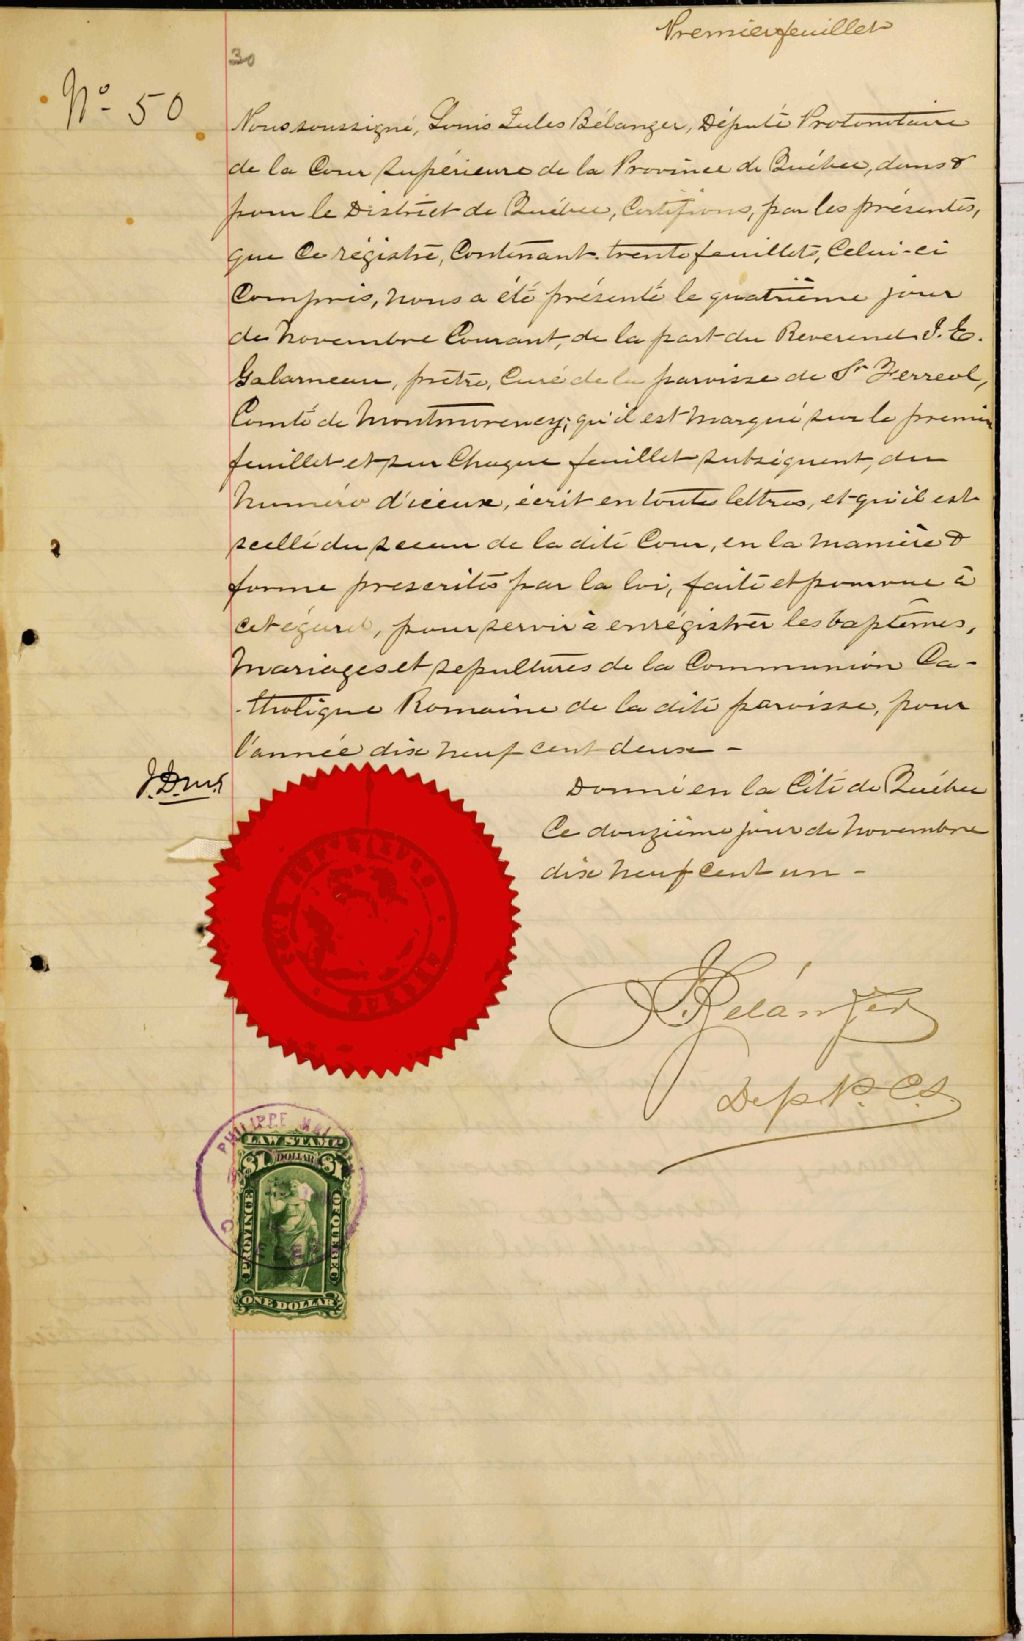 Premier feuillet
30
No 50
Nous soussigné, Louis Jules Bélanger, Député Protonotaire
de la Cour Supérieure de la Province de Québec, dans &
pour le District de Québec, Certifions, par les présentes,
que Ce régistre, Contenant trente feuillets, Celui-ci
Compris, nous a été présenté le quatrième jour
de Novembre Courant, de la part du Reverend J. E.
Galarneau, prêtre, Curé de la paroisse de St Ferreol,
Comté de Montmorency; qu'il est marqué sur le premier
feuillet et sur Chaque feuillet subséquent, du
Numéro d'iceux, écrit en toute lettres, et qu'il est
scellé du sceau de la dite Cour, en la manière &
forme prescrites par la loi, faite et pourvue à
cet égard, pour servir à enrégistrer les baptêmes,
Mariages et sepultures de la Communion Ca-
-tholique Romaine de la dite paroisse, pour
l'année dix neuf cent deux -
Donné en la Cité de Québec
Ce douzième jour de Novembre
dix neuf cent un -
Bélanger
Dep P. C. S.
QUEBEC
PHILIPPE
LAW STAMP
$1 DOLLAR $1
PROVINCE OF QUEBEC
ONE DOLLAR